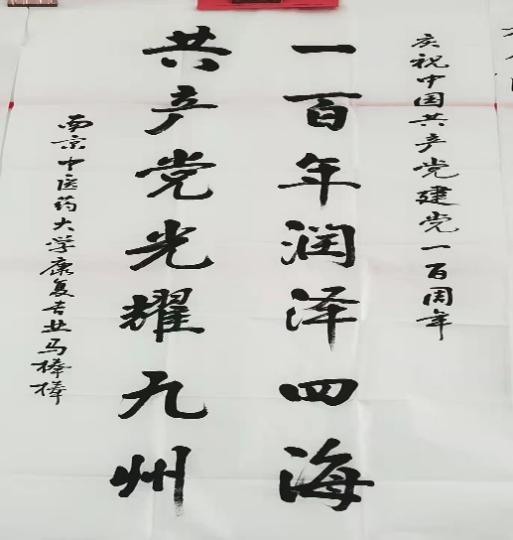 庆祝中国共产党建党一百周年
一百年润泽四海
共产党光耀九州
南京中医药大学康复专业马棒棒